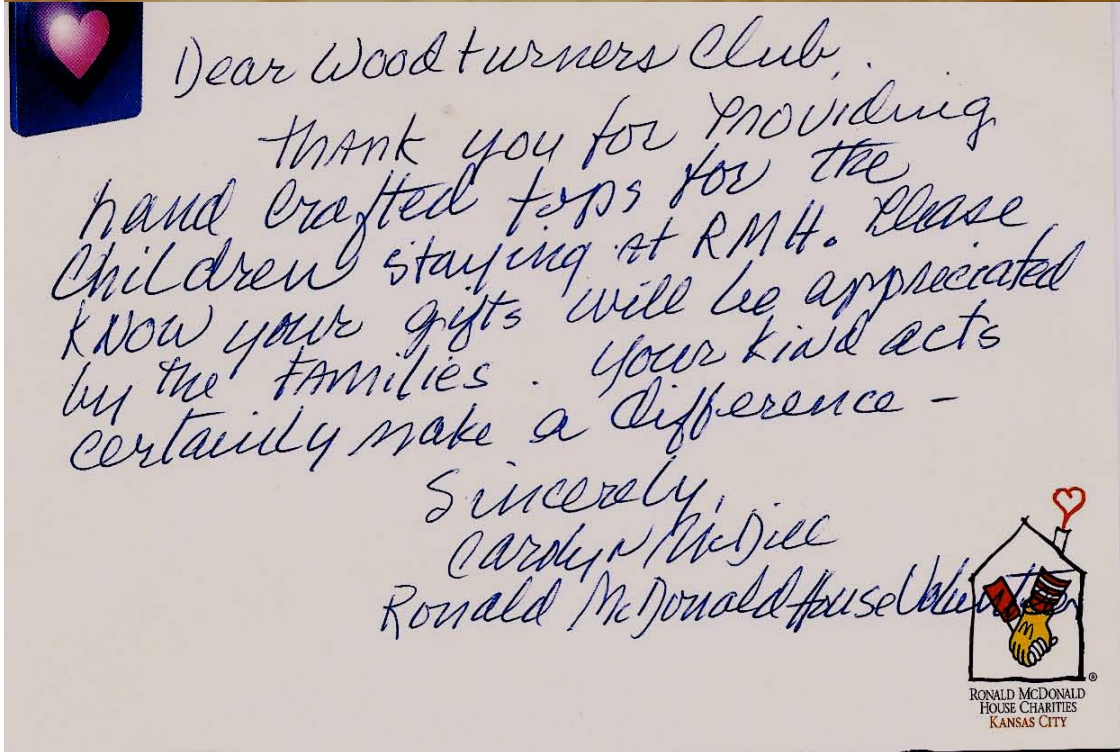 Dear Woodturners Club,
Thank you for Providing
hand Crafted tops for the
Children staying at RMH. Please
Know your gifts will be appreciated
by the FAMilies. Your kind acts
certainly make a difference -
Sincerely,
Carolyn McDill
Ronald McDonald House Volunteer
RONALD MCDONALD
HOUSE CHARITIES
KANSAS CITY